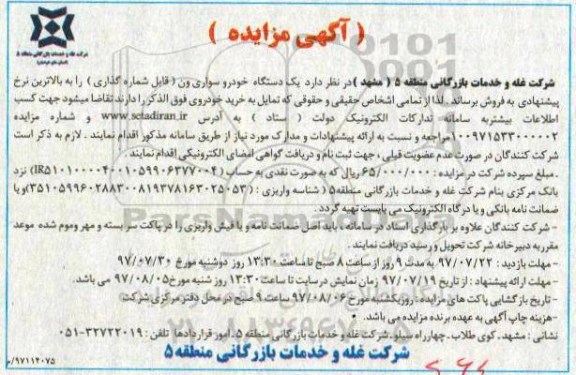 ( آگهی مزایده )
شرکت غله و خدمات بازرگانی منطقه ۵
شرکت غله و خدمات بازرگانی منطقه ۵ ( مشهد ) در نظر دارد یک دستگاه خودرو سواری ون ( قابل شماره گذاری ) را به بالاترین نرخ
پیشنهادی به فروش برساند . لذا از تمامی اشخاص حقیقی و حقوقی که تمایل به خرید خودروی فوق الذکر را دارند تقاضا میشود جهت کسب
اطلاعات بیشتر به سامانه تدارکات الکترونیک دولت ( ستاد ) به آدرس www.setadiran.ir و شماره مزایده
۱۰۰۹۷۱۵۳۳۰۰۰۰۰۲ مراجعه و نسبت به ارائه پیشنهادات و مدارک مورد نیاز از طریق سامانه مذکور اقدام نمایند . لازم به ذکر است
شرکت کنندگان در صورت عدم عضویت قبلی ، جهت ثبت نام و دریافت گواهی امضای الکترونیکی اقدام نمایند .
. مبلغ سپرده شرکت در مزایده : ۶۵/۰۰۰/۰۰۰ ریالی که به صورت نقدی به حساب ( IR۵۱۰۱۰۰۰۰۴۰۰۱۰۵۹۹۰۶۳۷۷۰۰۴ ) نزد
بانک مرکزی بنام شرکت غله و خدمات بازرگانی منطقه ۵ ( شناسه واریزی : ( ۳۵۱۰۵۹۹۶۰۲۸۸۳۰۰۸۱۹۳۷۸۱۶۳۰۲۵۰۵۳ ) و یا
ضمانت نامه بانکی و یا درگاه الکترونیک می بایست تهیه گردد .
- شرکت کنندگان علاوه بر بارگذاری اسناد در سامانه ، باید اصل ضمانت نامه و یا فیش واریزی را در پاکت سر بسته و مهر و موم شده موعد
مقرر به دبیرخانه شرکت تحویل و رسید دریافت نمایند .
- مهلت بازدید : ۹۷/۰۷/۲۲ به مدت ۹ روز از ساعت ۸ صبح تا ساعت ۱۳:۳۰ روز دوشنبه مورخ ۹۷/۰۷/۳۰
- مهلت ارائه پیشنهاد : از تاریخ ۹۷/۰۷/۱۹ زمان نمایش در سایت تا ساعت ۱۳:۳۰ روز شنبه مورخ ۹۷/۰۸/۰۵ می باشد .
- تاریخ بازگشایی پاکت های مزایده : روز یکشنبه مورخ ۹۷/۰۸/۰۶ ساعت ۹ صبح در محل دفتر مرکزی شرکت
- هزینه چاپ آگهی به عهده برنده مزایده می باشد .
نشانی : مشهد . کوی طلاب . چهارراه سیلو . شرکت غله و خدمات بازرگانی منطقه ۵ . امور قراردادها تلفن : ۳۲۷۲۲۰۱۹-۰۵۱
شرکت غله و خدمات بازرگانی منطقه ۵
۹۷۱۱۴۰۷۵/م